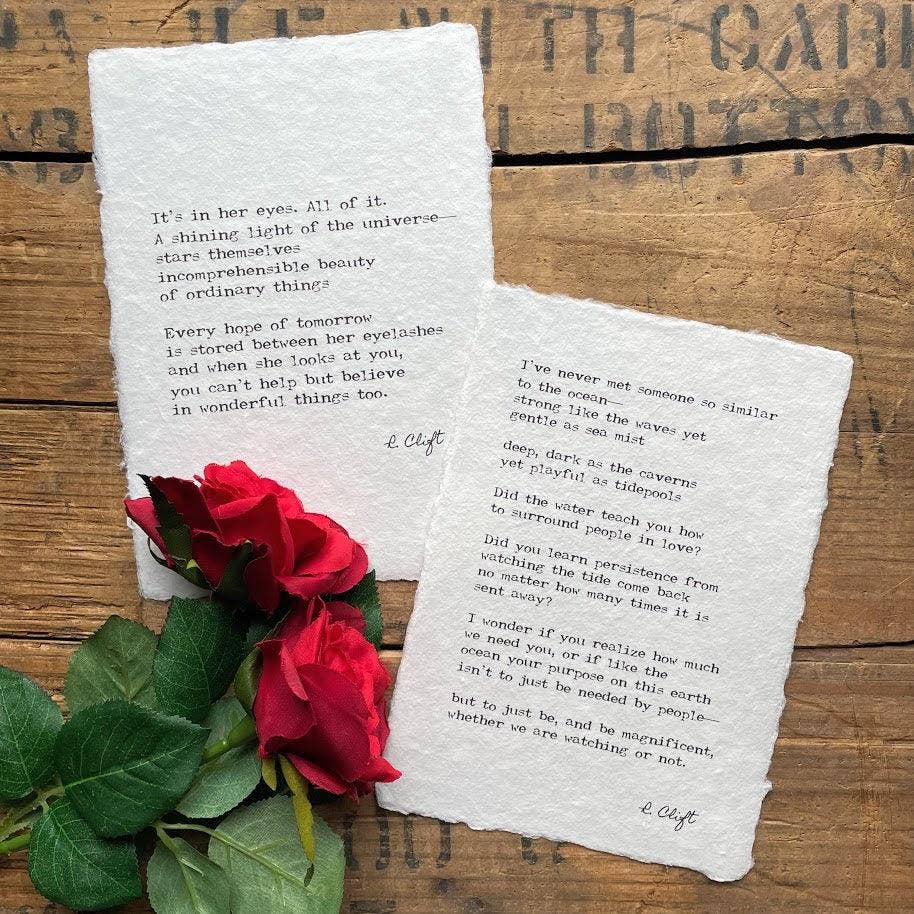 WITH CAR
BOTTO
It's in her eyes. All of it.
A shining light of the universe—
stars themselves
incomprehensible beauty
of ordinary things
Every hope of tomorrow
is stored between her eyelashes
and when she looks at you,
you can't help but believe
in wonderful things too.
R. Clift
I've never met someone so similar
to the ocean—
strong like the waves yet
gentle as sea mist
deep, dark as the caverns
yet playful as tidepools
Did the water teach you how
to surround people in love?
Did you learn persistence from
watching the tide come back
no matter how many times it is
sent away?
I wonder if you realize how much
we need you, or if like the
ocean your purpose on this earth
isn't to just be needed by people—
but to just be, and be magnificent,
whether we are watching or not.
R. Clift